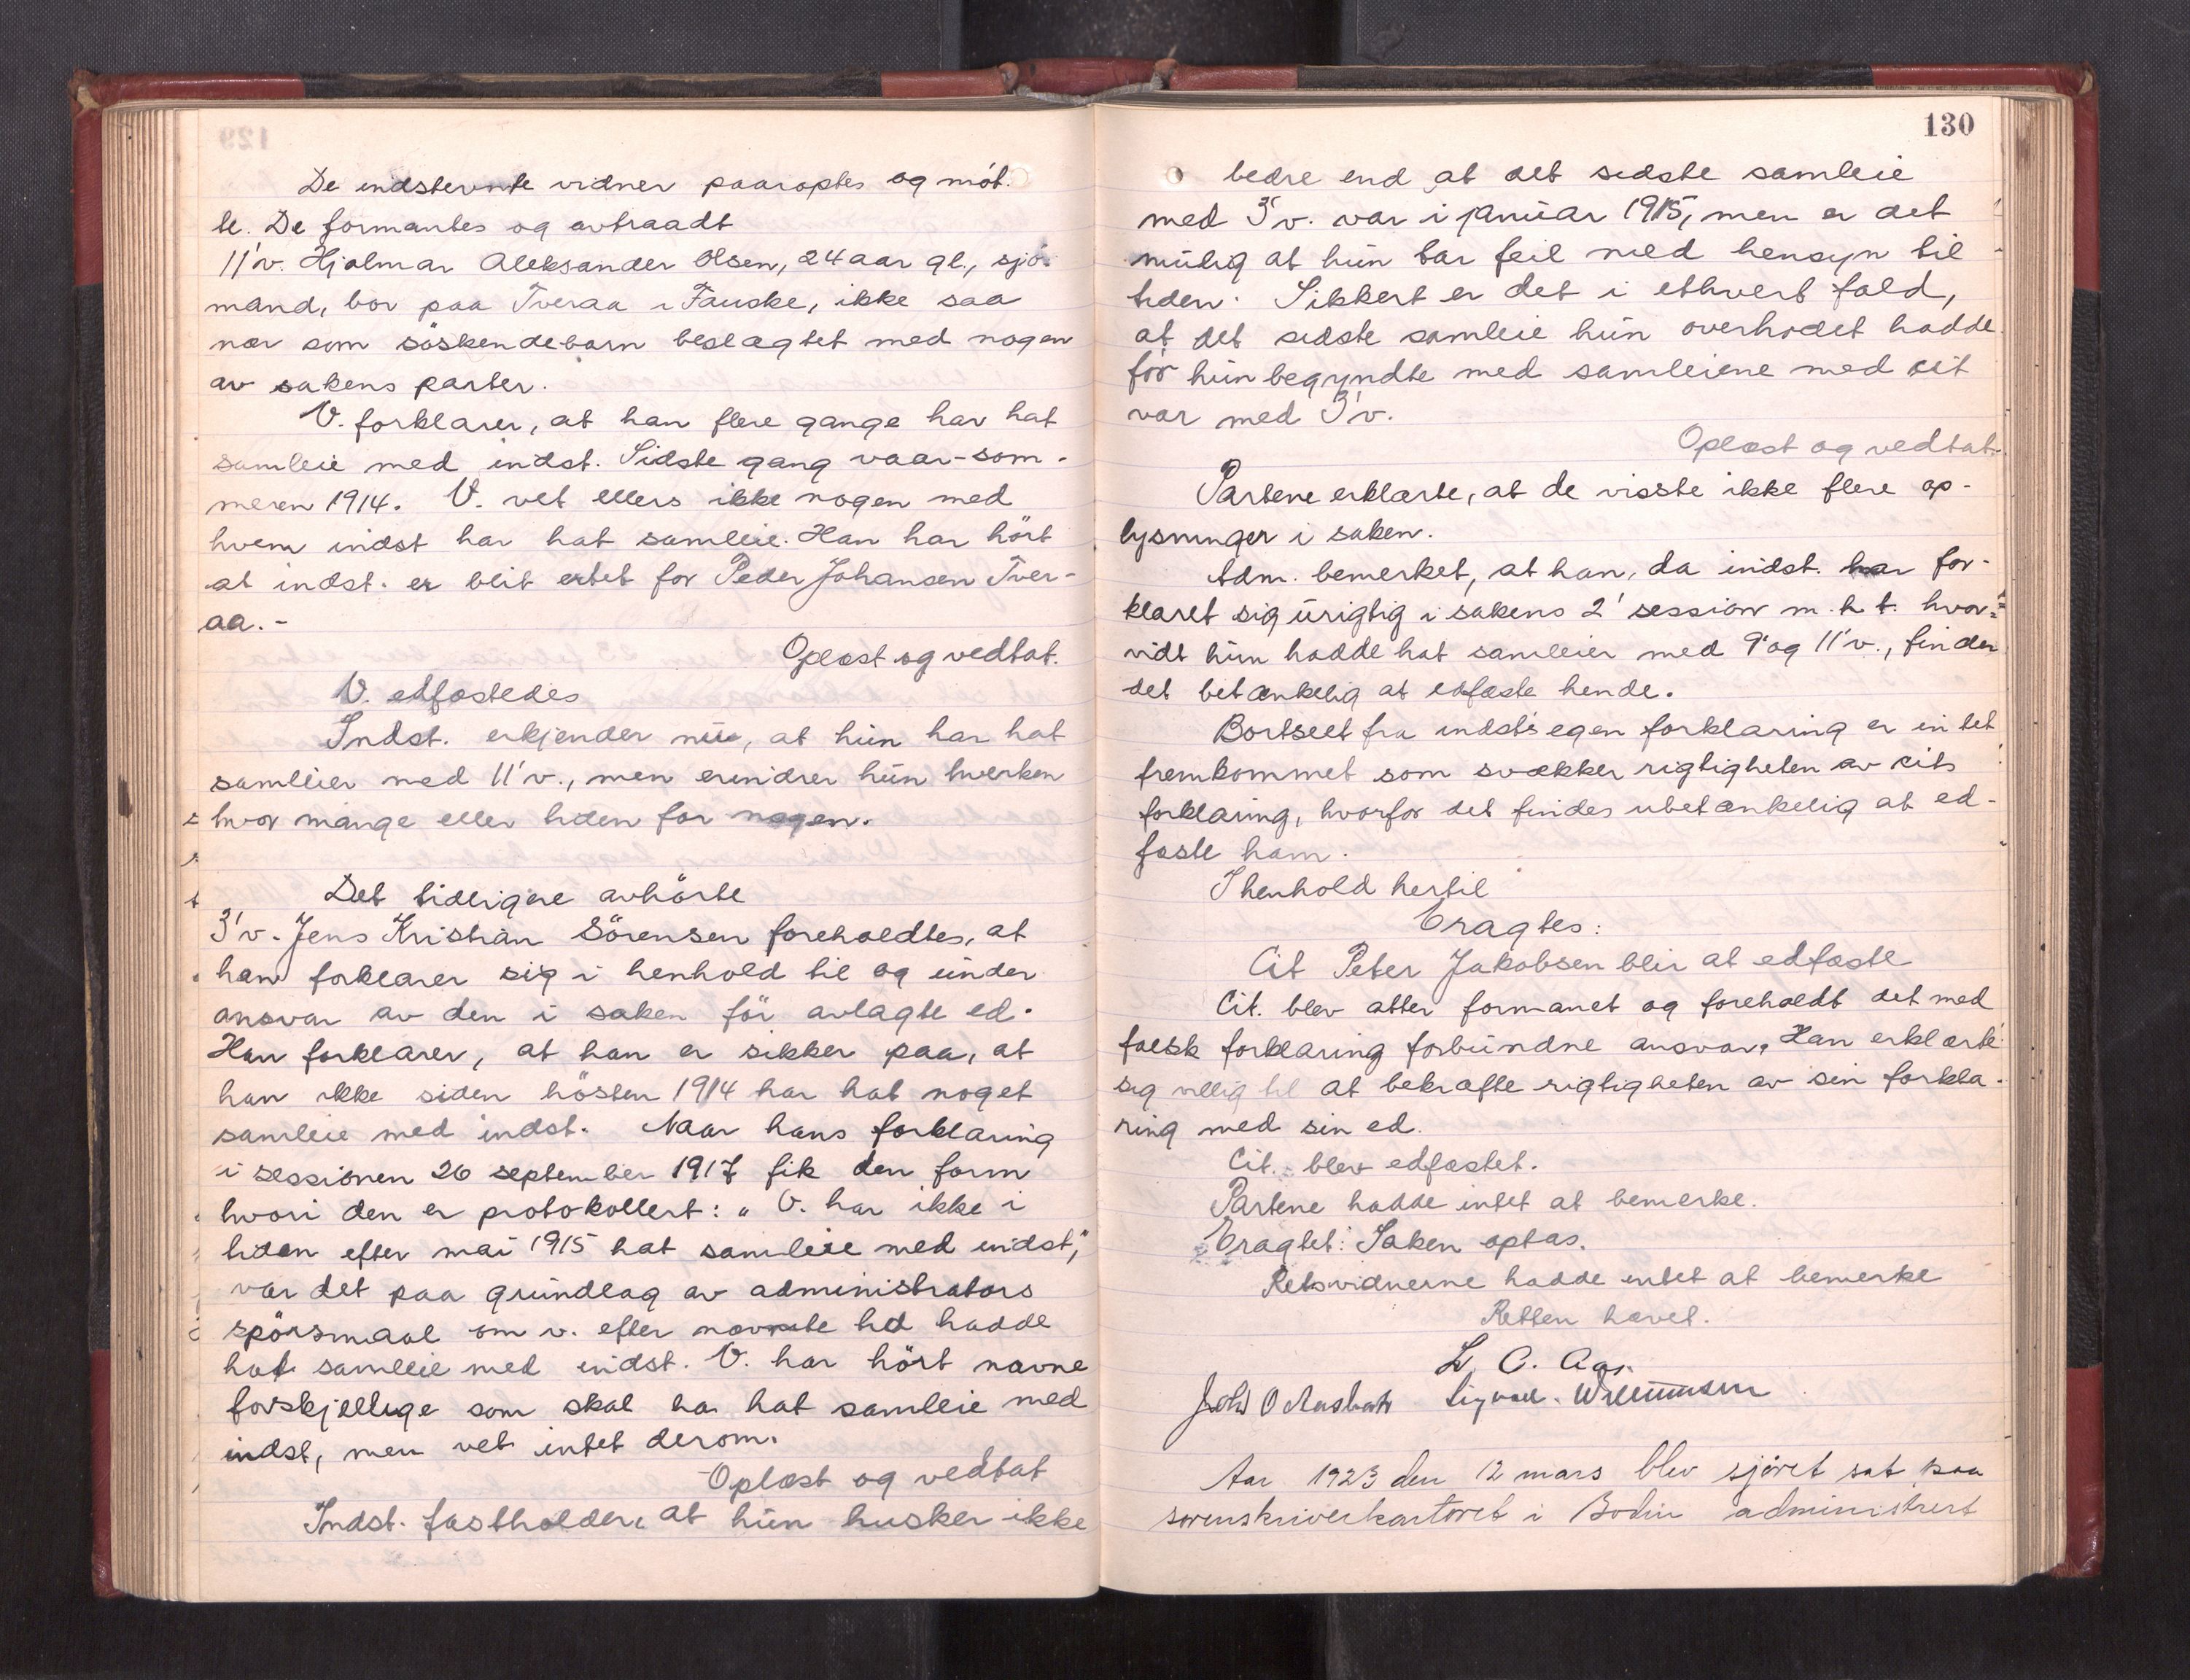 De indstevnte vidner paaroptes og möt-
te. De formantes og avtraadt
11' v. Hjalmar Aleksander Olsen, 24 aar gl., sjö-
mand, bor paa Tveraa i Fauske, ikke saa
nær som söskendebarn beslægtet med nogen
av sakens parter.
V. forklarer, at han flere gange har hat
samleie med indst. Sidste gang vaar-som-
meren 1914. V. vet ellers ikke nogen med
hvem indst har hat samleie. Han har hört
at indst. er blit ertet for Peder Johansen Tver-
aa.-
Oplæst og vedtat.
V. edfæstedes
Indst. erkjender nu, at hun har hat
samleier med 11' v., men erindrer hun hverken
hvor mange eller tiden for nogen.
Det tidligere avhörte
3' v. Jens Kristian Sörensen foreholdtes, at
han forklarer sig i henhold til og under
ansvar av den i saken för avlagte ed.
Han forklarer, at han er sikker paa, at
han ikke siden hösten 1914 har hat noget
samleie med indst. Naar hans forklaring
i sessionen 26 september 1917 fik den form
hvori den er protokollert: "V. har ikke i
tiden efter mai 1915 hat samleie med indst,"
var det paa grundlag av administrators
spörsmaal om v. efter nævnte tid hadde
hat samleie med indst. V. har hört nævne
forskjellige som skal ha hat samleie med
indst, men vet intet derom.
Oplæst og vedtat
Indst. fastholder, at hun husker ikke
130
bedre end at det sidste samleie
med 3' v. var i januar 1915, men er det
mulig at hun tar feil med hensyn til
tiden. Sikkert er det i ethvert fald,
at det sidste samleie hun overhodet hadde
för hun begyndte med samleiene med cit
var med 3' v.
Oplæst og vedtat.
Partene erklærte, at de visste ikke flere op-
lysninger i saken.
Adm. bemerket, at han, da indst. har for-
klaret sig urigtig i sakens 2' session m. h. t. hvor-
vidt hun hadde hat samleier med 9' og 11' v., finder
det betænkelig at edfæste hende.
Bortseet fra indst's egen forklaring er intet
fremkommet som svækker rigtigheten av cits
forklaring, hvorfor det findes ubetænkelig at ed-
fæste ham.
I henhold hertil
Eragtes:
Cit Peter Jakobsen blir at edfæste
Cit. blev atter formanet og foreholdt det med
falsk forklaring forbundne ansvar. Han erklærte
sig villig til at bekræfte rigtigheten av sin forkla-
ring med sin ed.
Cit. blev edfæstet.
Partene hadde intet at bemerke.
Eragtet: Saken optas.
Retsvidnerne hadde intet at bemerke
Retten hævet.
L. C. Aas.
Sigvart. Willumsen
Aar 1923 den 12 mars blev sjöret sat paa
sorenskriverkontoret i Bodin administrert